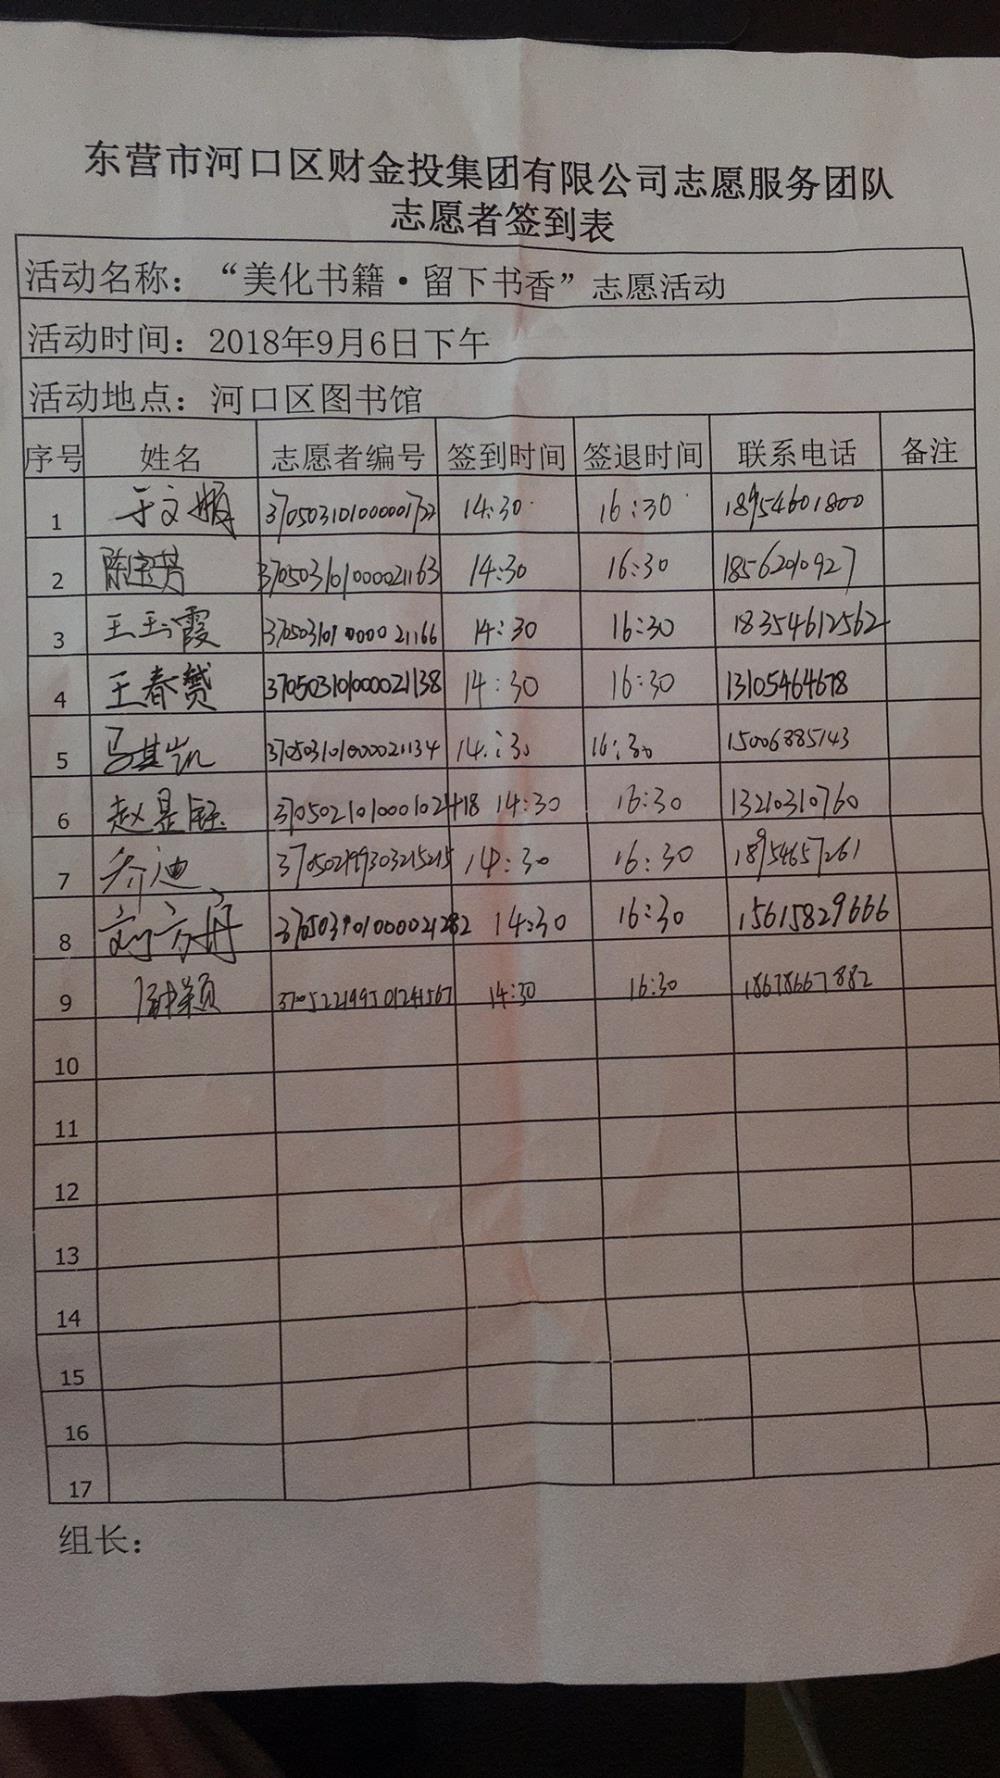 东营市河口区财金投集团有限公司志愿服务团队
志愿者签到表
活动名称：“美化书籍·留下书香”志愿活动
活动时间：2018年9月6日下午
活动地点：河口区图书馆
序号 姓名 志愿者编号 签到时间 签退时间 联系电话 备注
1 于文娟 14:30 16:30 18954601800
2 陈宝芳 370503101000021163 14:30 16:30 18562010927
3 王玉霞 370503101000021166 14:30 16:30 18354612562
4 王春赟 370503101000021138 14:30 16:30 13105464678
5 马其凯 370503101000021134 14:30 16:30 15006885143
6 赵昱钰 14:30 16:30 13210310760
7 乔迪 14:30 16:30 18954657261
8 370503101000021282 14:30 16:30 15615829666
9 14:30 16:30 18678667882
10
11
12
13
14
15
16
17
组长：